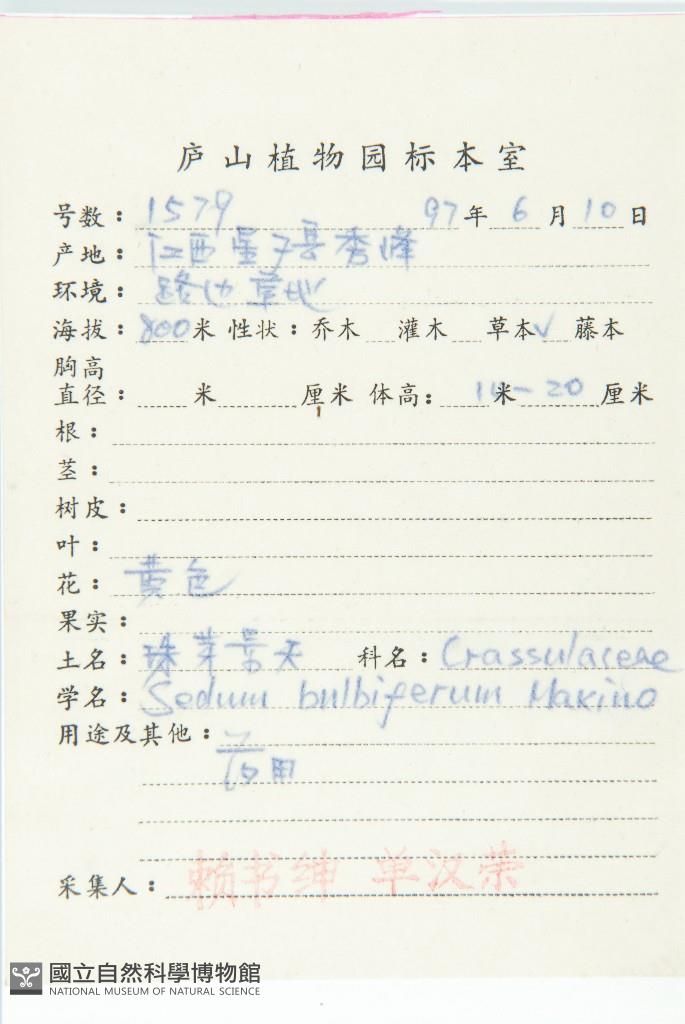 庐山植物园标本室
号数：1579 97年6月10日
产地：江西星子县秀峰
环境：路边草地
海拔：800米 性状：乔木 灌木 草本√ 藤本
胸高
直径： 米 厘米 体高： 米 -20 厘米
根：
茎：
树皮：
叶：
花：黄色
果实：
土名：珠芽景天 科名：Crassulaceae
学名：Sedum bulbiferum Makino
用途及其他：
采集人：赖书绅 单汉荣
國立自然科學博物館
NATIONAL MUSEUM OF NATURAL SCIENCE